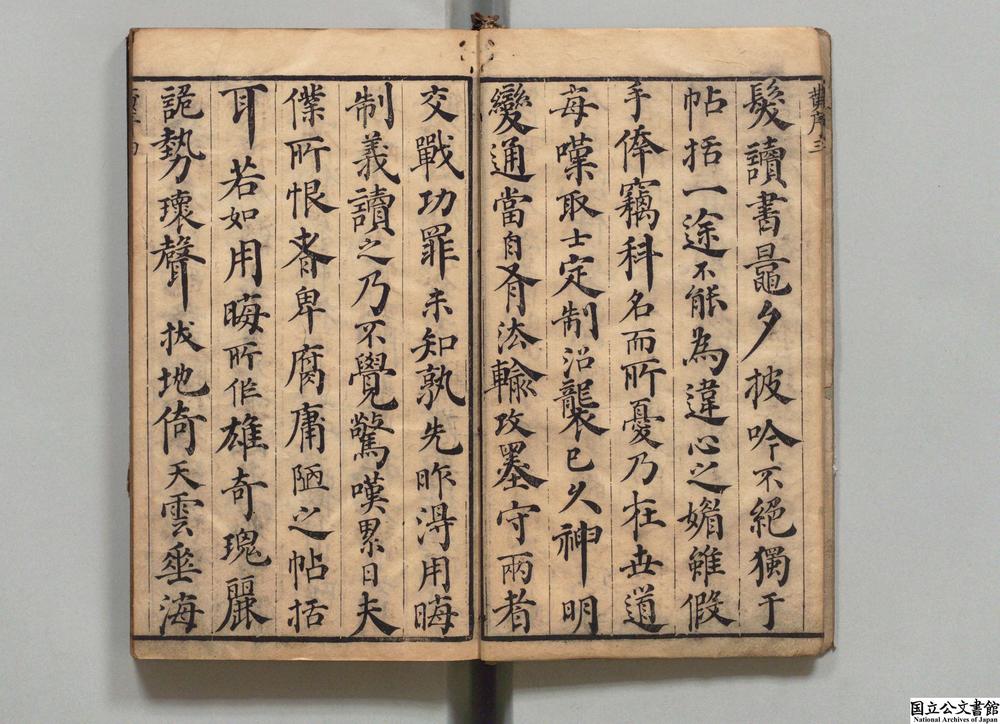 髮讀書鼂夕披吟不絕獨于
帖括一途不能為違心之媚雖假
手倖竊科名而所憂乃在世道
每嘆取士定制沿襲已久神明
變通當自有法輸攻墨守兩者
交戰功罪未知孰先昨淂用晦
制義讀之乃不覺驚嘆累日夫
僕所恨者卑腐庸陋之帖括
耳若如用晦所作雄奇瑰麗
詭勢瓌聲拔地倚天雲垂海
国立公文書館
National Archives of Japan